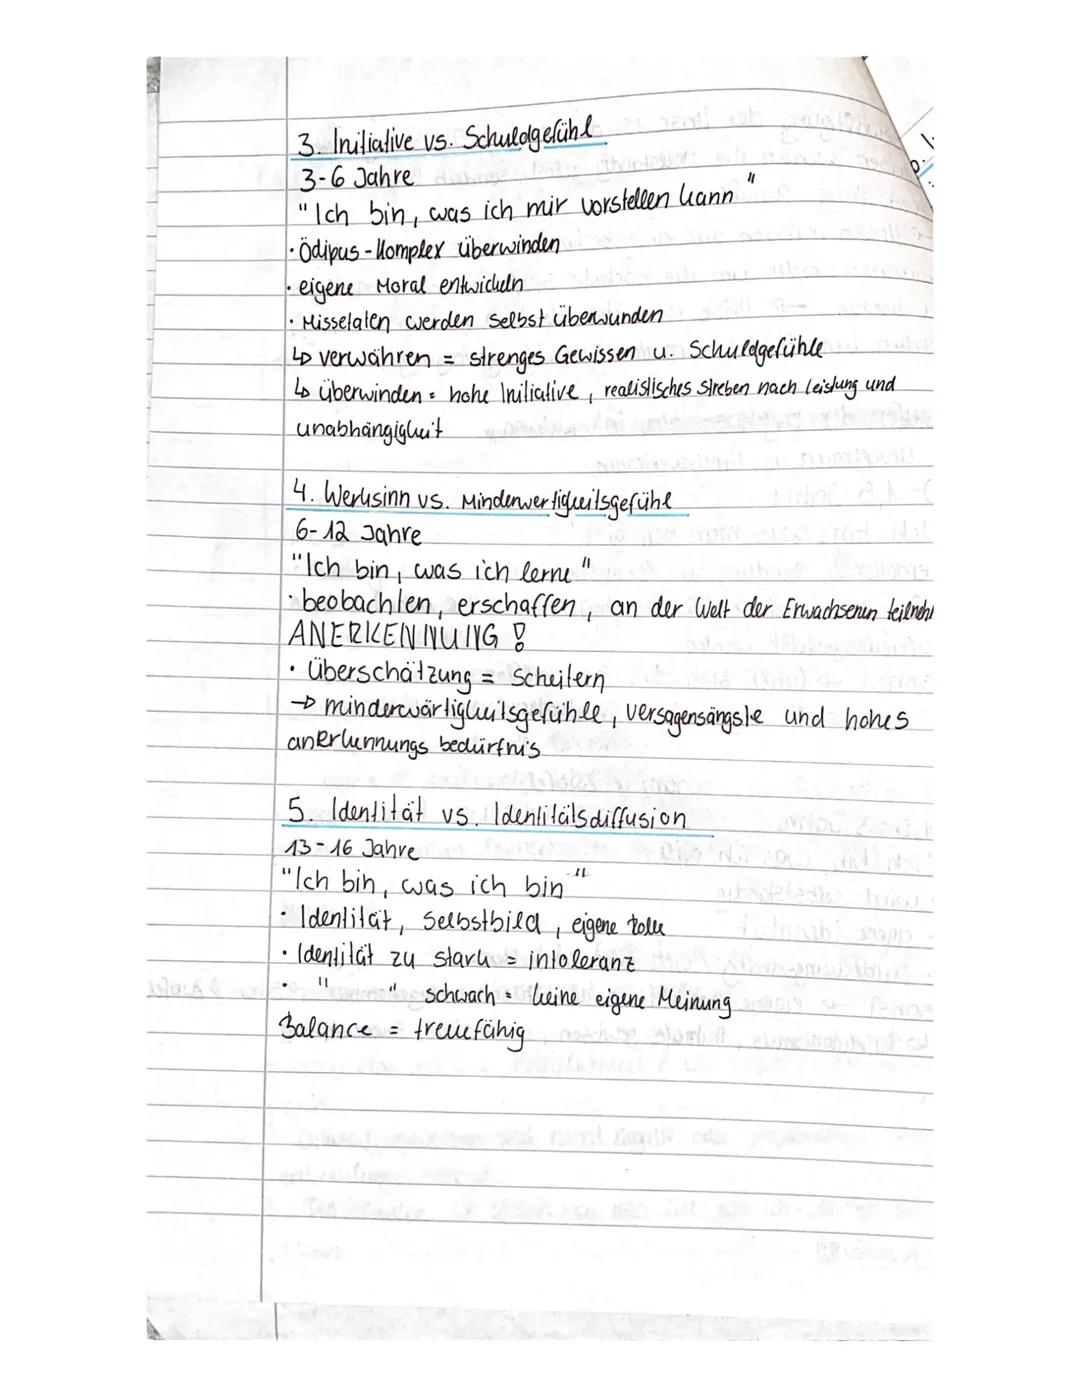 3. Initiative vs. Schuldgefühl
3-6 Jahre
"Ich bin, was ich mir vorstellen kann"
· Ödipus-Komplex überwinden
· eigene Moral entwickeln
· Missetaten werden selbst überwunden
↳ verwähren = strenges Gewissen u. Schuldgefühle
↳ überwinden = hohe Initiative, realistisches Streben nach Leistung und
unabhängigkeit
4. Werksinn vs. Minderwertigkeitsgefühl
6-12 Jahre
"Ich bin, was ich lerne"
· beobachten, erschaffen, an der Welt der Erwachsenen teilneh
ANERKENNUNG !
· Überschätzung = Scheitern
→ minderwärtigkeitsgefühle, versagensängste und hohes
anerkennungs bedürfnis
5. Identität vs. Identitätsdiffusion
13-16 Jahre
"Ich bin, was ich bin"
· Identität, Selbstbild, eigene
· Identität zu stark = intoleranz
· " " schwach = keine eigene Meinung
Balance = treuefähig